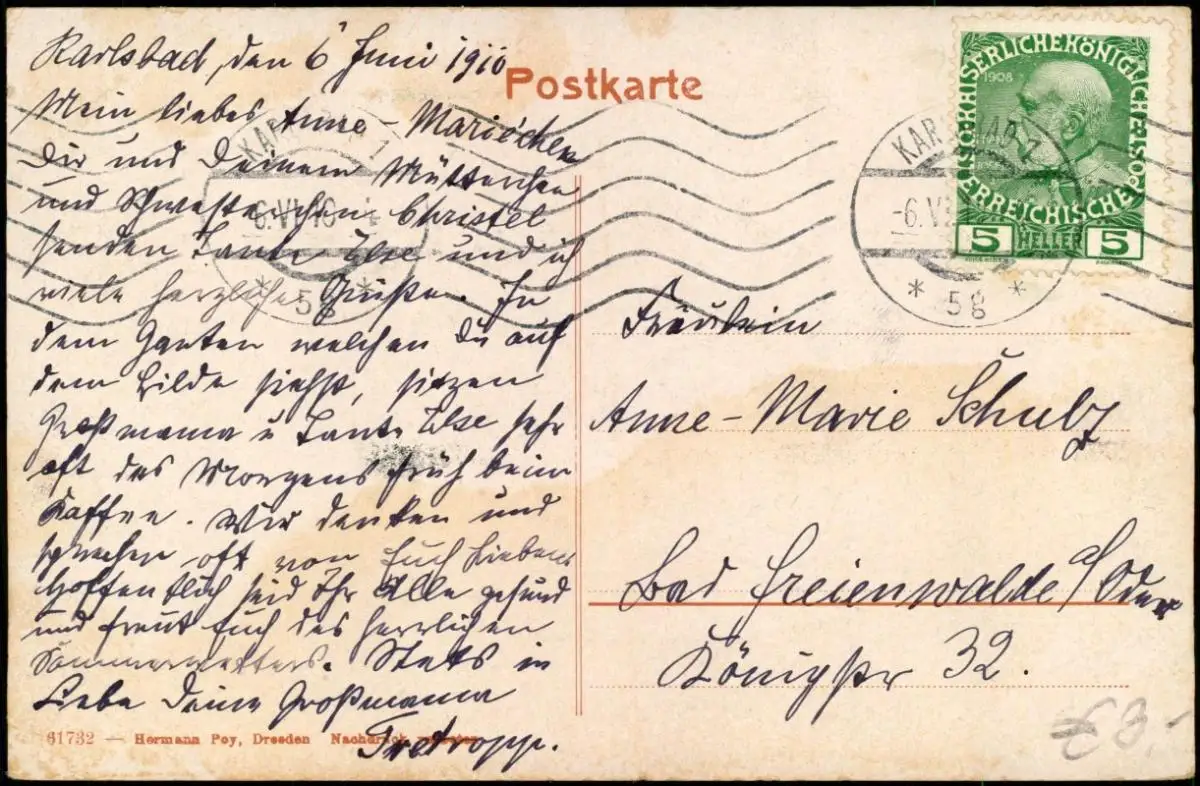 Karlsbad, den 6 Juni 1910
Postkarte
Mein liebes Anne-Mariechen
Dir und Deinem Mütterchen
und Schwesterchen Christel
senden Tante Ilse und ich
viele herzliche Grüße. In
dem Garten welchen Du auf
dem Bilde siehst, sitzen
Großmama u Tante Ilse sehr
oft des Morgens früh beim
Kaffee. Wir denken und
sprechen oft von Euch Lieben.
Hoffentlich seid Ihr Alle gesund
und freut Euch des herrlichen
Sommerwetters. Stets in
Liebe Deine Großmama
Tretropp.
61732 — Hermann Poy, Dresden Nachdruck verboten
KAISERLICHE KÖNIGLICHE ÖSTERREICHISCHE POST
1908
5 HELLER 5
KARLSBAD 1
-6.VI
* 5g *
KARLSBAD 1
6.VI 10
* 5g *
Fräulein
Anne-Marie Schulz
Bad Freienwalde a/Oder
Königstr 32.
€3.-